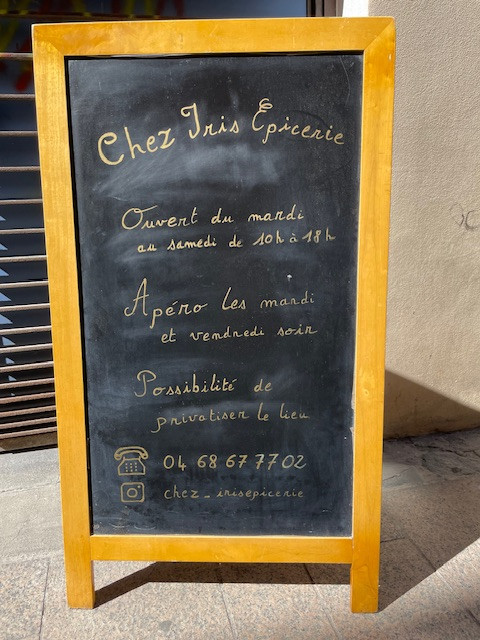 Chez Iris Épicerie
Ouvert du mardi
au samedi de 10h à 18h
Apéro les mardi
et vendredi soir
Possibilité de
privatiser le lieu
04 68 67 77 02
chez_irisepicerie